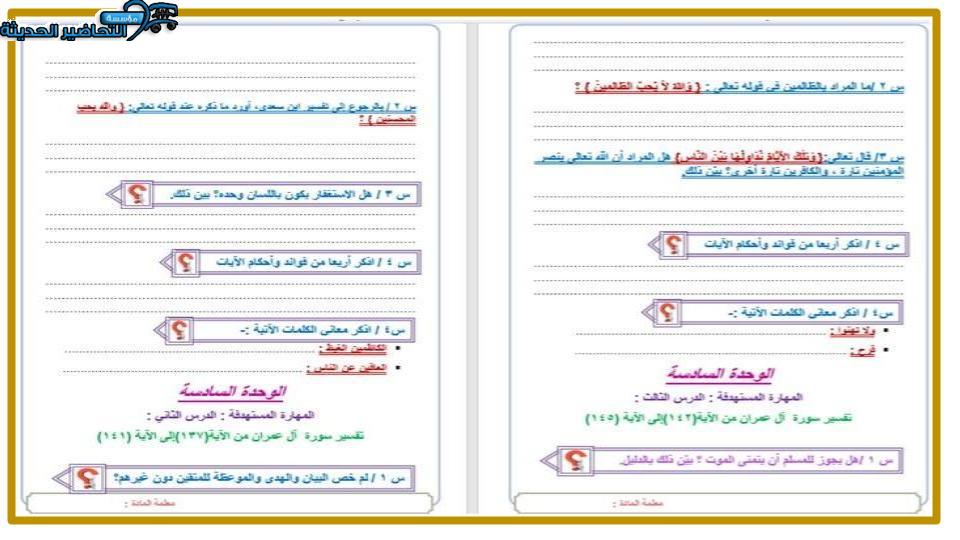 مؤسسة
التحاضير الحديثة
س ٢ /ما المراد بالظالمين في قوله تعالى : { وَاللهُ لاَ يُحِبُّ الظَّالِمِينَ } ؟
س ٣/ قال تعالى:{وَتِلْكَ الأَيَّامُ نُدَاوِلُهَا بَيْنَ النَّاسِ} هل المراد أن الله تعالى ينصر
المؤمنين تارة ، والكافرين تارة أخرى؟ بيّن ذلك.
س ٤ / اذكر أربعا من فوائد وأحكام الآيات
س٤ / اذكر معاني الكلمات الآتية :-
ولا تهنوا :
قرح :
الوحدة السادسة
المهارة المستهدفة : الدرس الثالث :
تفسير سورة آل عمران من الآية(١٤٢)إلى الآية (١٤٥)
س ١ /هل يجوز للمسلم أن يتمنى الموت ؟ بيّن ذلك بالدليل.
معلمة المادة :
س ٢ / بالرجوع إلى تفسير ابن سعدي، أورد ما ذكره عند قوله تعالى: { والله يحب
المحسنين } ؟
س ٣ / هل الاستغفار يكون باللسان وحده؟ بين ذلك.
س ٤ / اذكر أربعا من فوائد وأحكام الآيات
س٤ / اذكر معاني الكلمات الآتية :-
الكاظمين الغيظ :
العافين عن الناس :
الوحدة السادسة
المهارة المستهدفة : الدرس الثاني :
تفسير سورة آل عمران من الآية(١٣٧)إلى الآية (١٤١)
س ١ / لم خص البيان والهدى والموعظة للمتقين دون غيرهم؟
معلمة المادة :